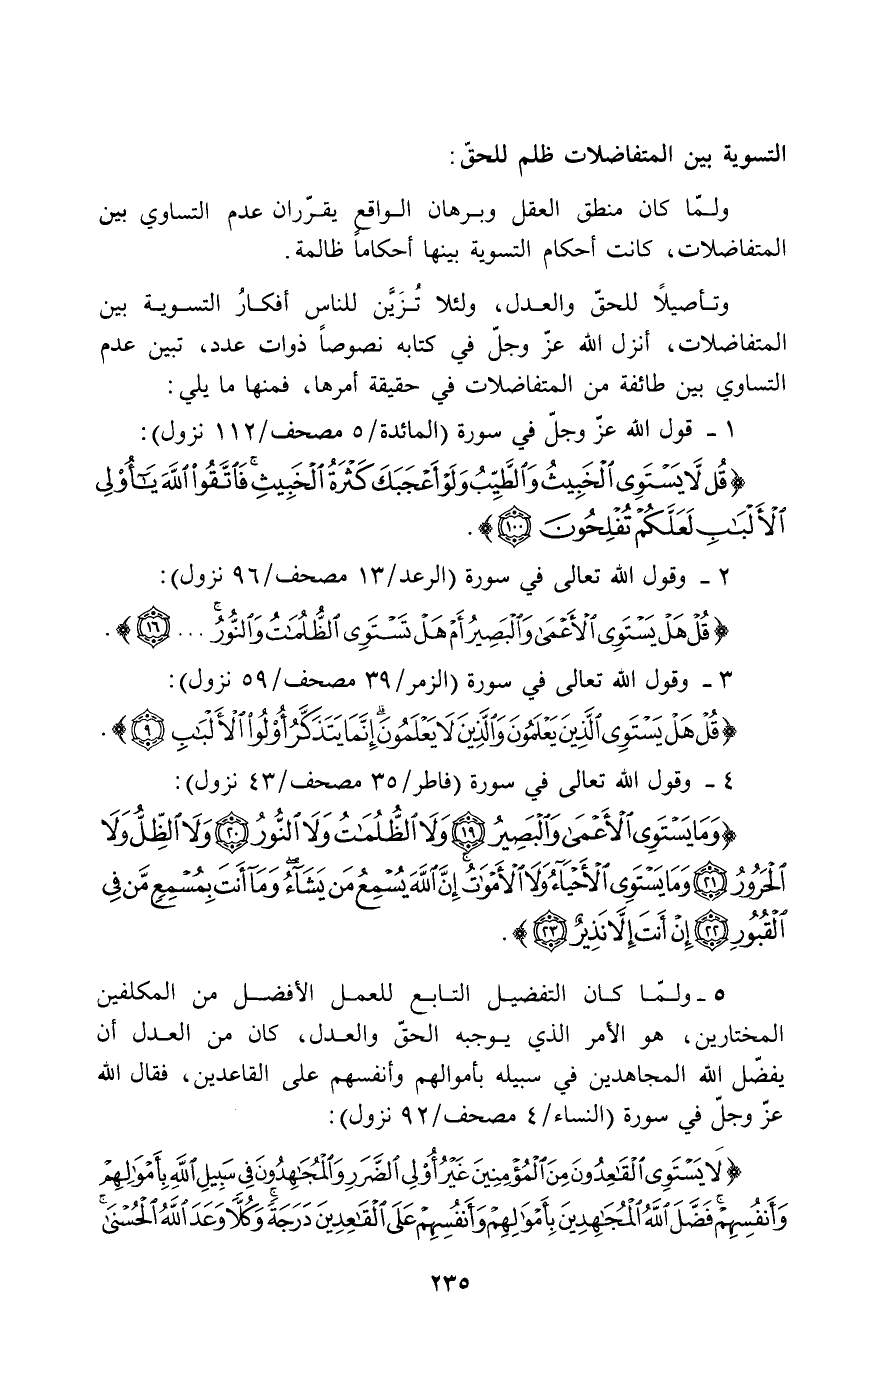 التسوية بين المتفاضلات ظلم للحقّ:
ولـمّا كان منطق العقل وبـرهان الـواقع يقـرّران عدم التساوي بين
المتفاضلات، كانت أحكام التسوية بينها أحكاماً ظالمة.
وتـأصيلاً للحقّ والعـدل، ولئلا تُـزَيَّن للناس أفكـارُ التسـويـة بين
المتفاضلات، أنزل الله عزّ وجلّ في كتابه نصوصاً ذوات عدد، تبين عدم
التساوي بين طائفة من المتفاضلات في حقيقة أمرها، فمنها ما يلي:
١ - قول الله عزّ وجلّ في سورة (المائدة/٥ مصحف/١١٢ نزول):
﴿قُل لَّا يَسْتَوِى ٱلْخَبِيثُ وَٱلطَّيِّبُ وَلَوْ أَعْجَبَكَ كَثْرَةُ ٱلْخَبِيثِ ۚ فَٱتَّقُوا۟ ٱللَّهَ يَـٰٓأُو۟لِى
ٱلْأَلْبَـٰبِ لَعَلَّكُمْ تُفْلِحُونَ ١٠٠﴾.
٢ - وقول الله تعالى في سورة (الرعد/١٣ مصحف/٩٦ نزول):
﴿قُلْ هَلْ يَسْتَوِى ٱلْأَعْمَىٰ وَٱلْبَصِيرُ أَمْ هَلْ تَسْتَوِى ٱلظُّلُمَـٰتُ وَٱلنُّورُ ۚ ... ١٦﴾.
٣ - وقول الله تعالى في سورة (الزمر/٣٩ مصحف/٥٩ نزول):
﴿قُلْ هَلْ يَسْتَوِى ٱلَّذِينَ يَعْلَمُونَ وَٱلَّذِينَ لَا يَعْلَمُونَ ۗ إِنَّمَا يَتَذَكَّرُ أُو۟لُوا۟ ٱلْأَلْبَـٰبِ ٩﴾.
٤ - وقول الله تعالى في سورة (فاطر/٣٥ مصحف/٤٣ نزول):
﴿وَمَا يَسْتَوِى ٱلْأَعْمَىٰ وَٱلْبَصِيرُ ١٩ وَلَا ٱلظُّلُمَـٰتُ وَلَا ٱلنُّورُ ٢٠ وَلَا ٱلظِّلُّ وَلَا
ٱلْحَرُورُ ٢١ وَمَا يَسْتَوِى ٱلْأَحْيَآءُ وَلَا ٱلْأَمْوَٰتُ ۚ إِنَّ ٱللَّهَ يُسْمِعُ مَن يَشَآءُ ۖ وَمَآ أَنتَ بِمُسْمِعٍ مَّن فِى
ٱلْقُبُورِ ٢٢ إِنْ أَنتَ إِلَّا نَذِيرٌ ٢٣﴾.
٥ - ولـمّـا كـان التفضيـل التـابـع للعمـل الأفضـل من المكلفين
المختارين، هو الأمر الذي يـوجبه الحقّ والعـدل، كان من العـدل أن
يفضّل الله المجاهدين في سبيله بأموالهم وأنفسهم على القاعدين، فقال الله
عزّ وجلّ في سورة (النساء/٤ مصحف/٩٢ نزول):
﴿لَا يَسْتَوِى ٱلْقَـٰعِدُونَ مِنَ ٱلْمُؤْمِنِينَ غَيْرُ أُو۟لِى ٱلضَّرَرِ وَٱلْمُجَـٰهِدُونَ فِى سَبِيلِ ٱللَّهِ بِأَمْوَٰلِهِمْ
وَأَنفُسِهِمْ ۚ فَضَّلَ ٱللَّهُ ٱلْمُجَـٰهِدِينَ بِأَمْوَٰلِهِمْ وَأَنفُسِهِمْ عَلَى ٱلْقَـٰعِدِينَ دَرَجَةً ۚ وَكُلًّا وَعَدَ ٱللَّهُ ٱلْحُسْنَىٰ ۚ
٢٣٥